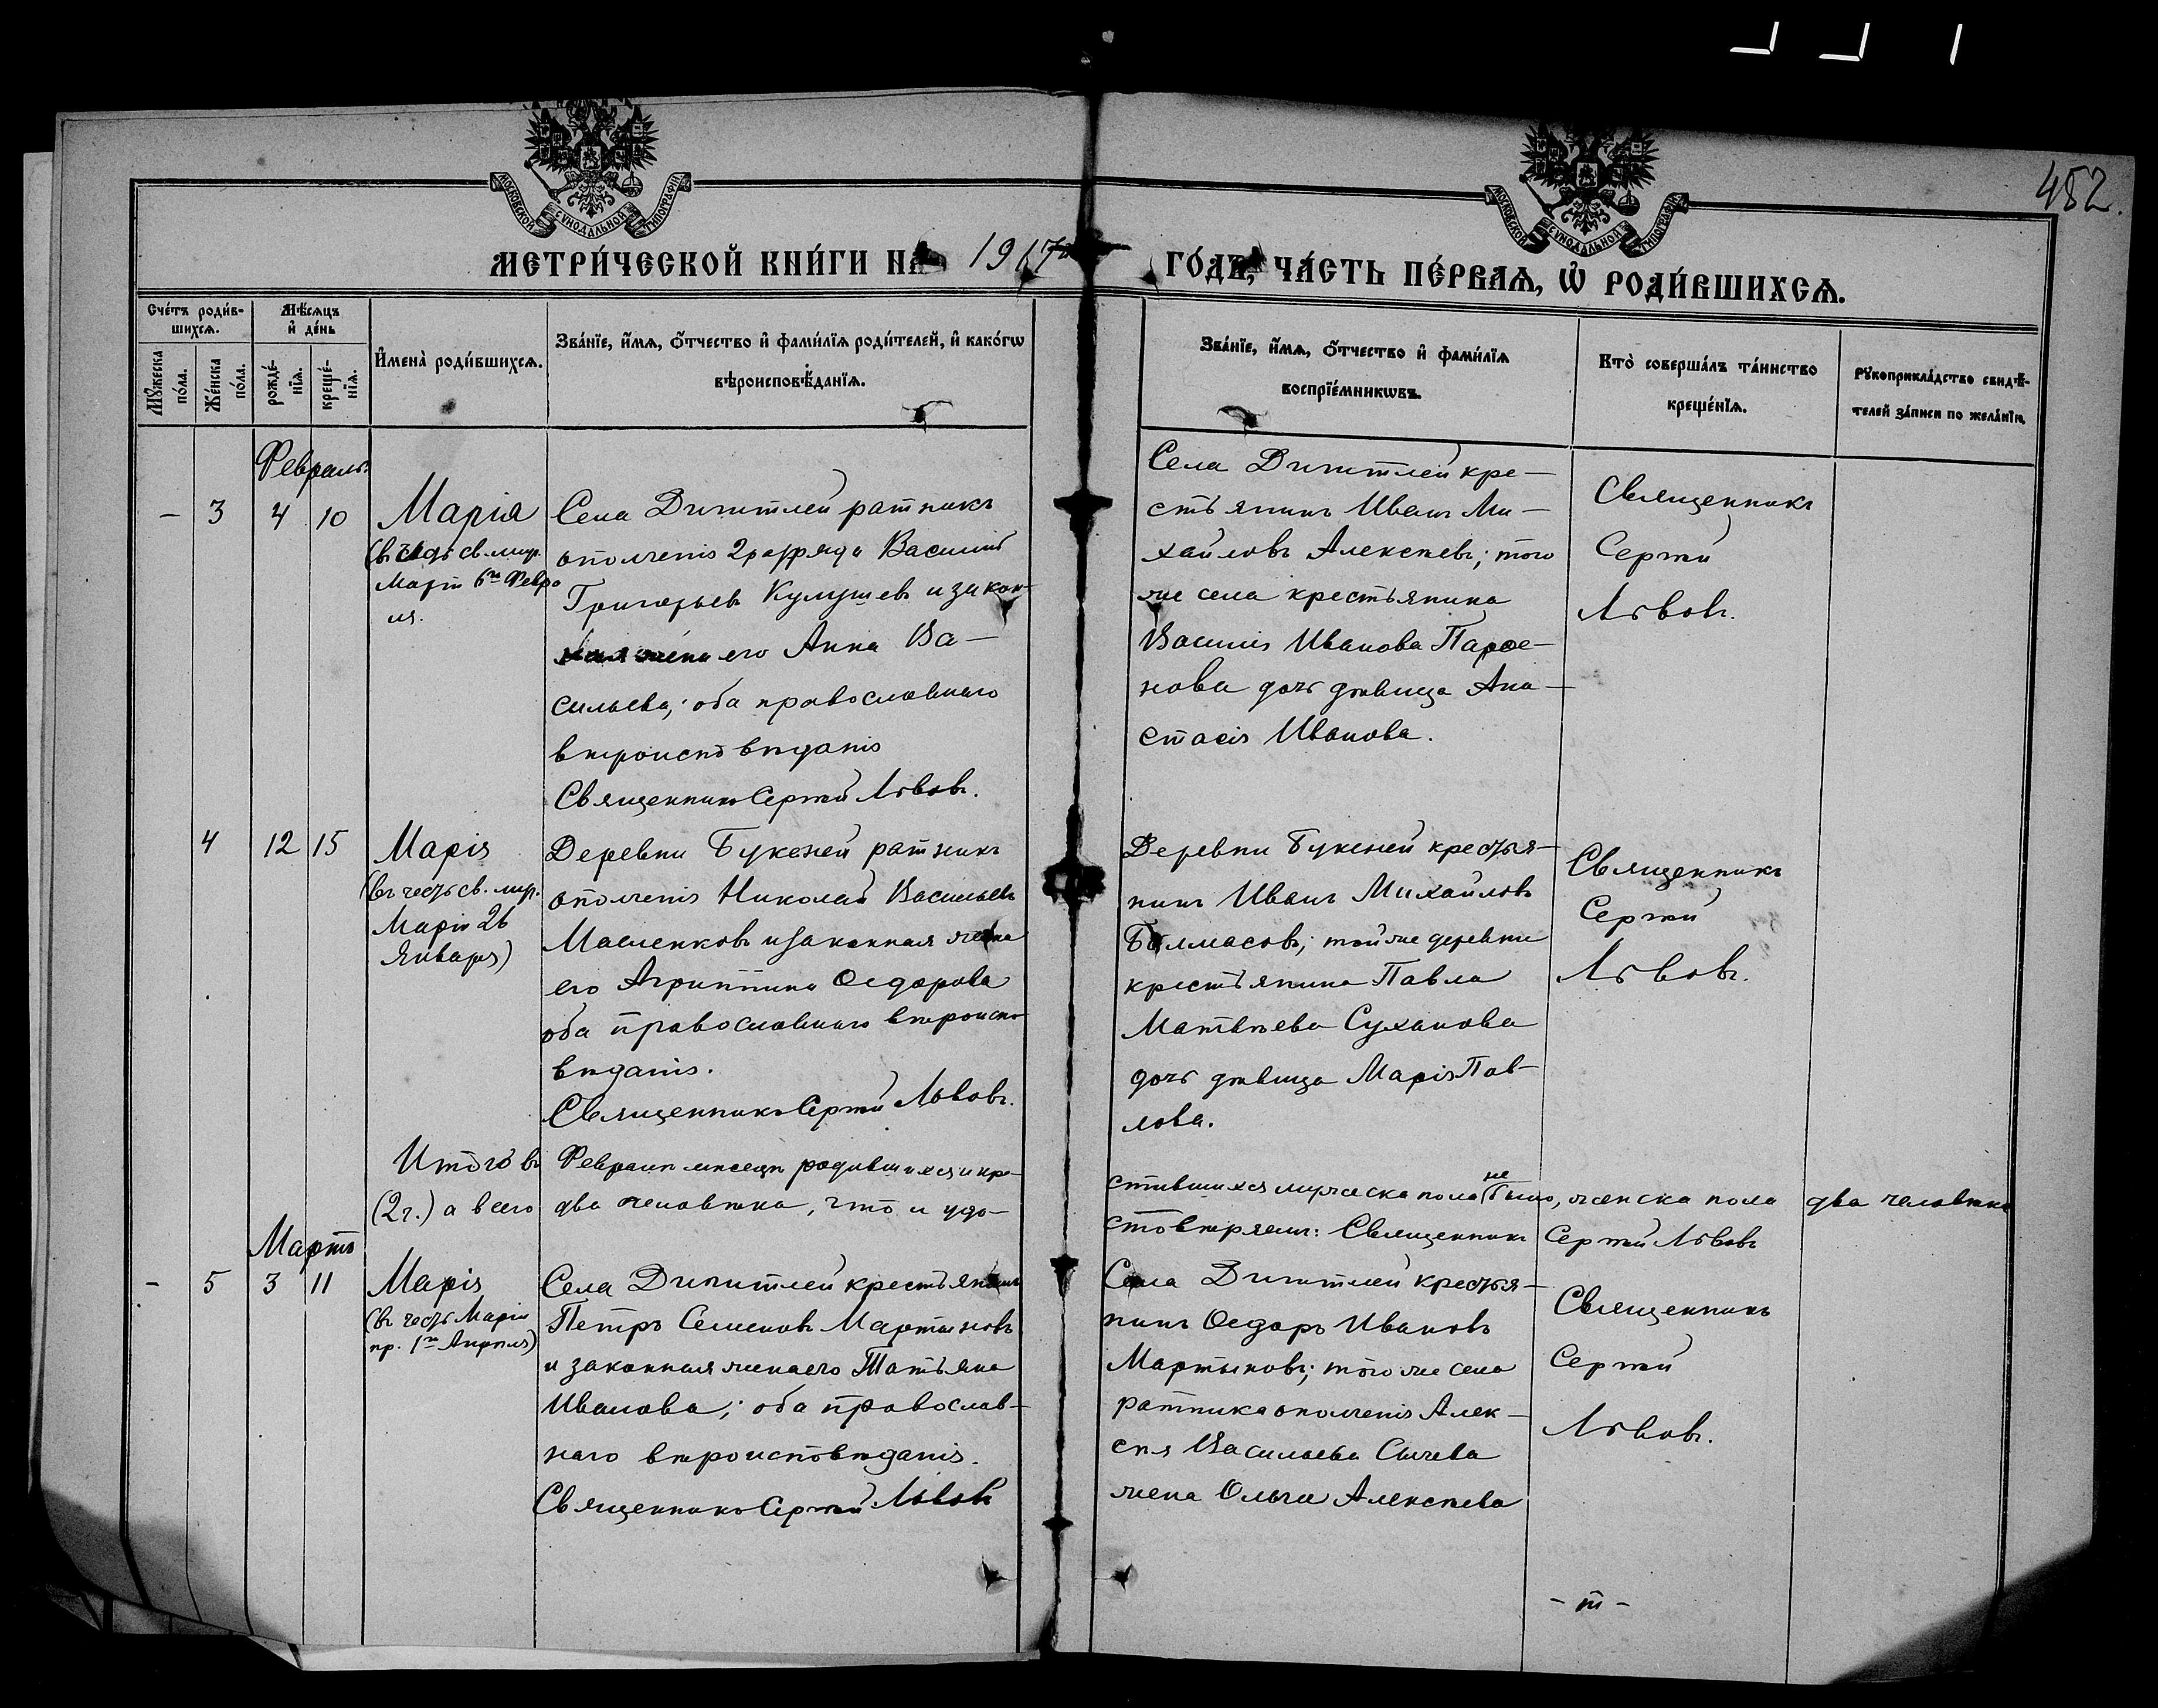 482.
МОСКОВСКОЙ СУНОДАЛЬНОЙ ТИПОГРАФІИ
МОСКОВСКОЙ СУНОДАЛЬНОЙ ТИПОГРАФІИ
МЕТРИ́ЧЕСКОЙ КНИ́ГИ НА 1917 ГО́ДЪ, ЧА́СТЬ ПЕ́РВАѦ, Ѡ҆ РОДИ́ВШИХСѦ.
Сче́тъ роди́в-
шихсѧ.
Мꙋ́жеска по́ла.
Же́нска по́ла.
Мѣ́сѧцъ
и҆ де́нь
рожде́-нїѧ.
креще́-нїѧ.
И҆мена̀ роди́вшихсѧ.
Зва́нїе, и҆́мѧ, ѻ҆́тчество и҆ фами́лїѧ роди́телей, и҆ како́гѡ
вѣроисповѣ́данїѧ.
Зва́нїе, и҆́мѧ, ѻ҆́тчество и҆ фами́лїѧ
воспрїе́мникѡвъ.
Кто̀ соверша́лъ та́инство
креще́нїѧ.
Рꙋкоприкла́дство свидѣ́-
телей за́писи по жела́нїю.
Февраль.
– 3 4 10
Марія
(въ честь св. мир.
Маріи 6го Февра
ля.
Села Дигитлей ратникъ
ополченія 2 разряда Василій
Григорьевъ Кулушевъ и закон-
ная жена его Анна Ва-
сильева; оба православнаго
вѣроисповѣданія
Священникъ Сергій Львовъ.
Села Дигитлей кре-
стьянинъ Иванъ Ми-
хайловъ Алексѣевъ; того
же села крестьянина
Василія Иванова Парѳе-
нова дочь дѣвица Ана-
стасія Иванова.
Священникъ
Сергій
Львовъ.
4 12 15
Марія
(въ честь св. мир.
Маріи 26
Января)
Деревни Букеней ратникъ
ополченія Николай Васильевъ
Масленковъ и законная жена
его Агриппина Ѳедорова
оба православнаго вѣроиспо-
вѣданія.
Священникъ Сергій Львовъ.
Деревни Букеней крестья-
нинъ Иванъ Михайловъ
Балмасовъ; той же деревни
крестьянина Павла
Матвѣева Суханова
дочь дѣвица Марія Пав-
лова.
Священникъ
Сергій
Львовъ.
Итого въ Февралѣ мѣсяцѣ родившихся и кре-
стившихся мужеска пола не было, женска пола два человѣка
(2ч.) а всего два человѣка, что и удо-
стовѣряемъ: Священникъ Сергій Львовъ
Мартъ
– 5 3 11
Марія
(въ честь Маріи
пр. 1го Апрѣля)
Села Дигитлей крестьянинъ
Петръ Семеновъ Мартыновъ
и законная жена его Татьяна
Иванова; оба православ-
наго вѣроисповѣданія.
Священникъ Сергій Львовъ
Села Дигитлей крестья-
нинъ Ѳедоръ Ивановъ
Мартыновъ; того же села
ратника ополченія Алек-
сѣя Васильева Сычева
жена Ольга Алексѣева
Священникъ
Сергій
Львовъ.
– т –